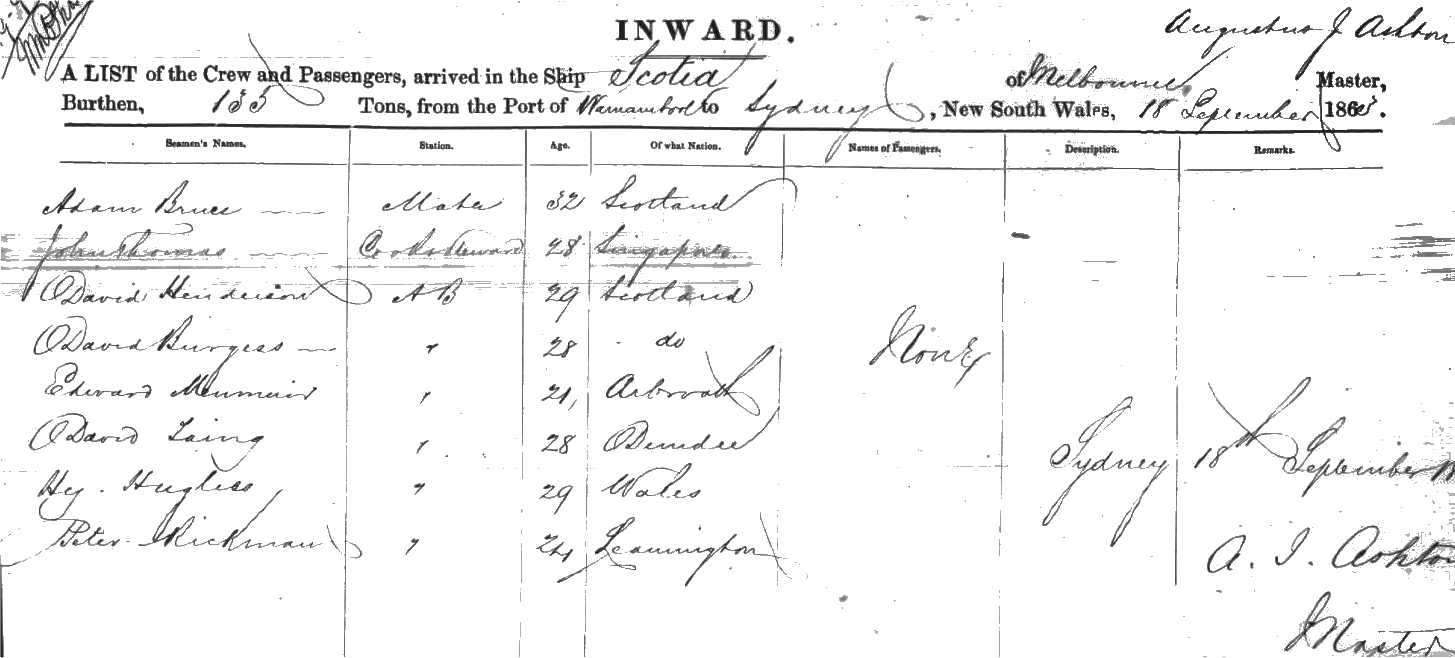 INWARD.
Augustus J Ashton
A LIST of the Crew and Passengers, arrived in the Ship Scotia of Melbourne Master,
Burthen, 135 Tons, from the Port of to Sydney, New South Wales, 18 September 186
Seamen's Names. Station. Age. Of what Nation. Names of Passengers. Description. Remarks.
Adam Bruce Mate 32 Scotland
John Thomas Cook & Steward 28 Singapore
David Henderson AB 29 Scotland
David Burgess " 28 do None
Edward " 21 Arbroath
David Laing " 28 Dundee Sydney 18th September
Hy. Hughes " 29 Wales
Peter Rickman " 24 Leamington A. J. Ashton
Master